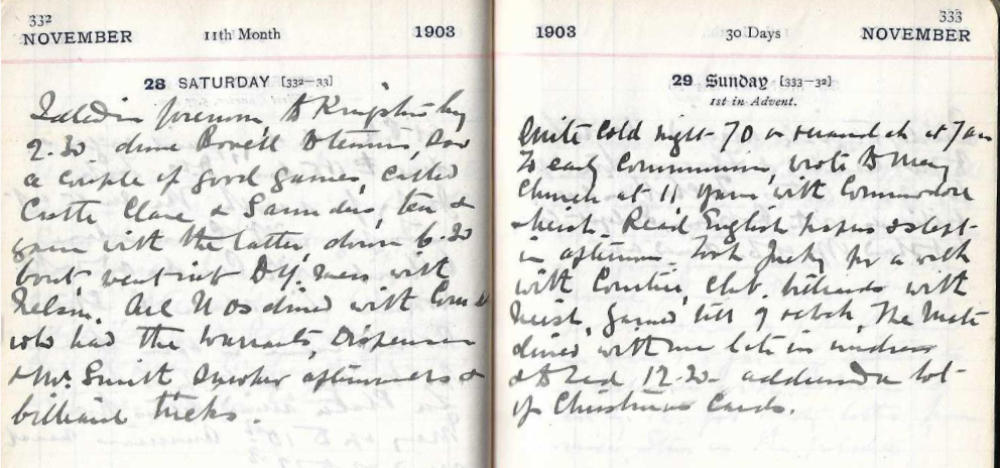 332
NOVEMBER 11th Month 1903
28 SATURDAY [332–33]
forenoon to Kingston by
2.30 drove to tennis, saw
a couple of good games, called
Castle Clare & Saunders, tea &
game with the latter, down 6.30
boat, went into Dy. mess with
Nelson. All N Os dined with Com
who had the Warrants, Dispenser
& Mr. Smith afterwards &
billiard tricks.
333
1903 30 Days NOVEMBER
29 Sunday [333–32]
1st in Advent.
Quite cold night 70 at 7 am
To early Communion, wrote to May
Church at 11 with Commodore
& Neish. Read English papers & slept
in afternoon. Took Jacky for a walk
with Club. billiards with
Neish, till 7 The
dined with me late in
& to bed 12.30 addressed a lot
of Christmas Cards.